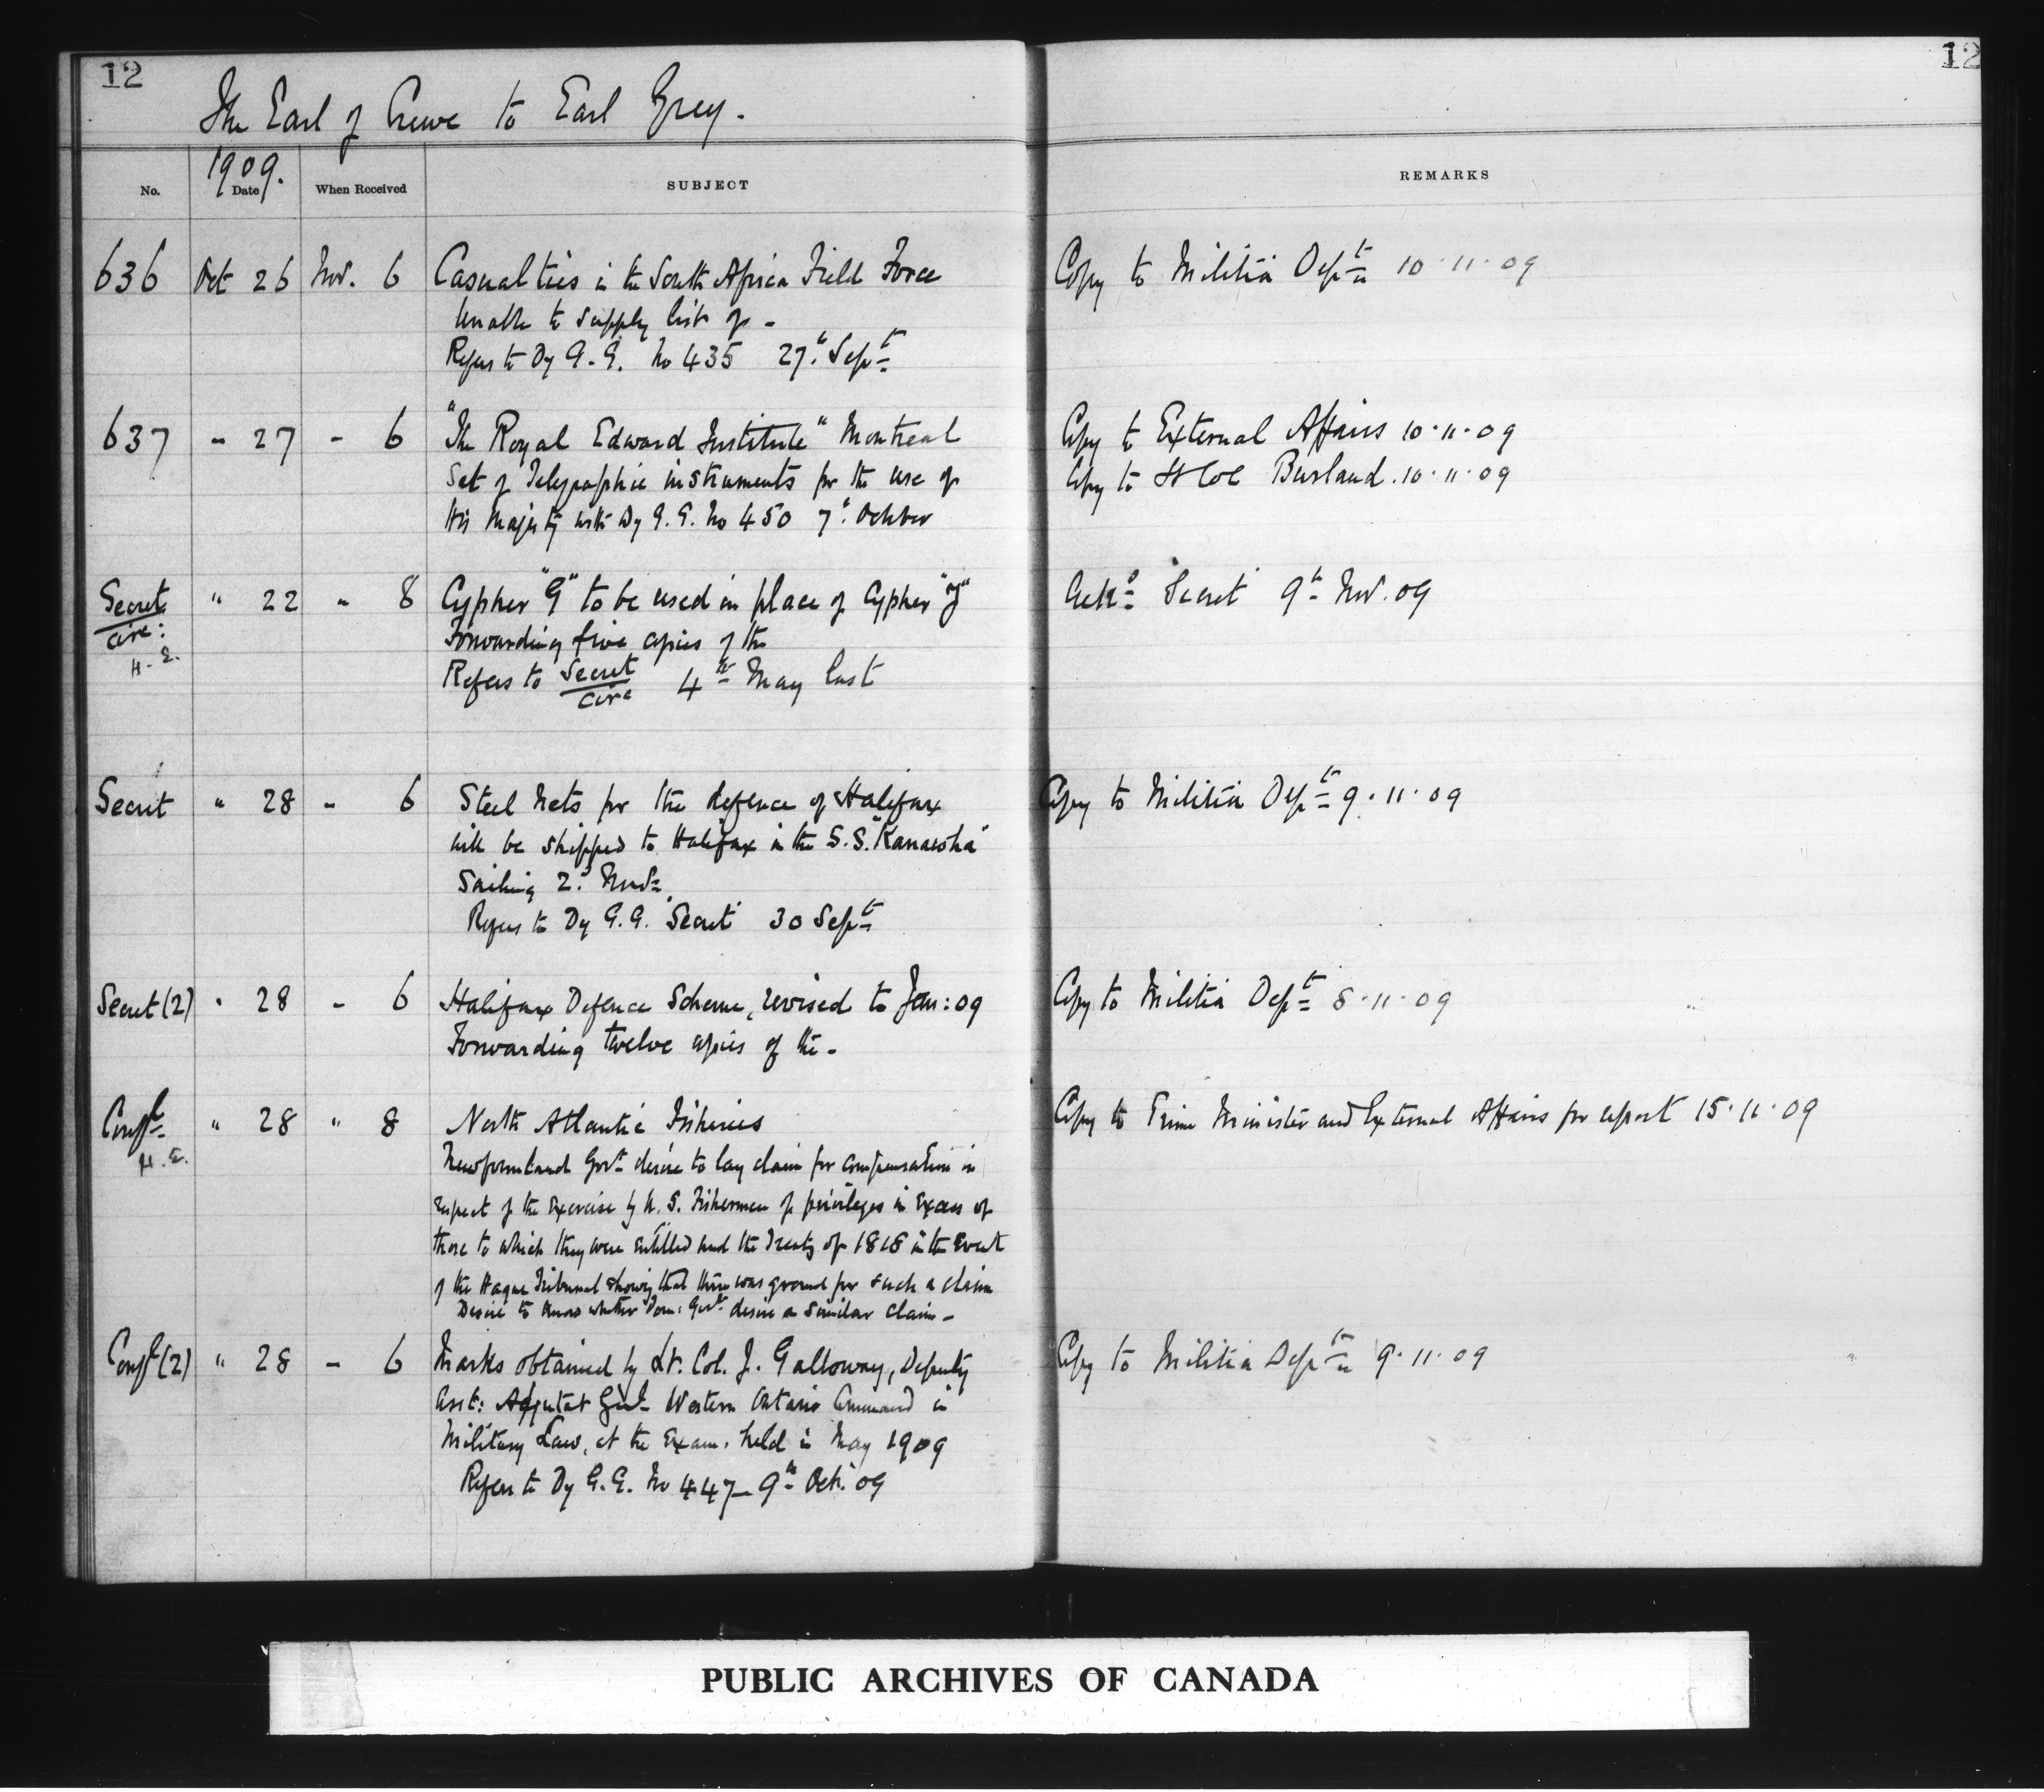 12
12
The Earl of Crewe to Earl Grey.
1909.
No. Date When Received SUBJECT REMARKS
636 Oct 26 Nov. 6 Casualties in the South Africa Field Force Copy to Militia Dept 10.11.09
Unable to supply list of -
Refers to Dy G.G. No 435 27th Sept
637 - 27 - 6 "The Royal Edward Institute" Montreal Copy to External Affairs 10.11.09
Set of Telegraphic instruments for the use of Copy to Lt Col Burland. 10.11.09
His Majesty with Dy G.G. No 450 7th October
Secret " 22 - 8 Cypher "G" to be used in place of Cypher Ackd Secret 9th Nov. 09
Circ: Forwarding five copies of the
H.E. Refers to Secret 4th May last
Circ
Secret " 28 - 6 Steel Nets for the defence of Halifax Copy to Militia Dept 9.11.09
will be shipped to Halifax in the S.S. "Kanawha"
Sailing 2d Nov.
Refers to Dy G.G. Secret 30 Sept
Secret (2) " 28 - 6 Halifax Defence Scheme, revised to Jan: 09 Copy to Militia Dept 8.11.09
Forwarding twelve copies of the -
Confl " 28 " 8 North Atlantic Fisheries Copy to Prime Minister and External Affairs for report 15.11.09
H.E. Newfoundland Govt desire to lay claim for compensation in
respect of the exercise by U.S. Fishermen of privileges in excess of
those to which they were entitled und the Treaty of 1818 in the event
of the Hague Tribunal showing that there was ground for such a claim
Desire to know whether Dom: Govt desire a similar claim -
Confl (2) " 28 - 6 Marks obtained by Lt. Col. J. Galloway, Deputy Copy to Militia Dept 9.11.09
Asst: Adjutant Genl Western Ontario Command in
Military Law, at the Exam. held in May 1909
Refers to Dy G.G. No 447 - 9th Oct. 09
PUBLIC ARCHIVES OF CANADA